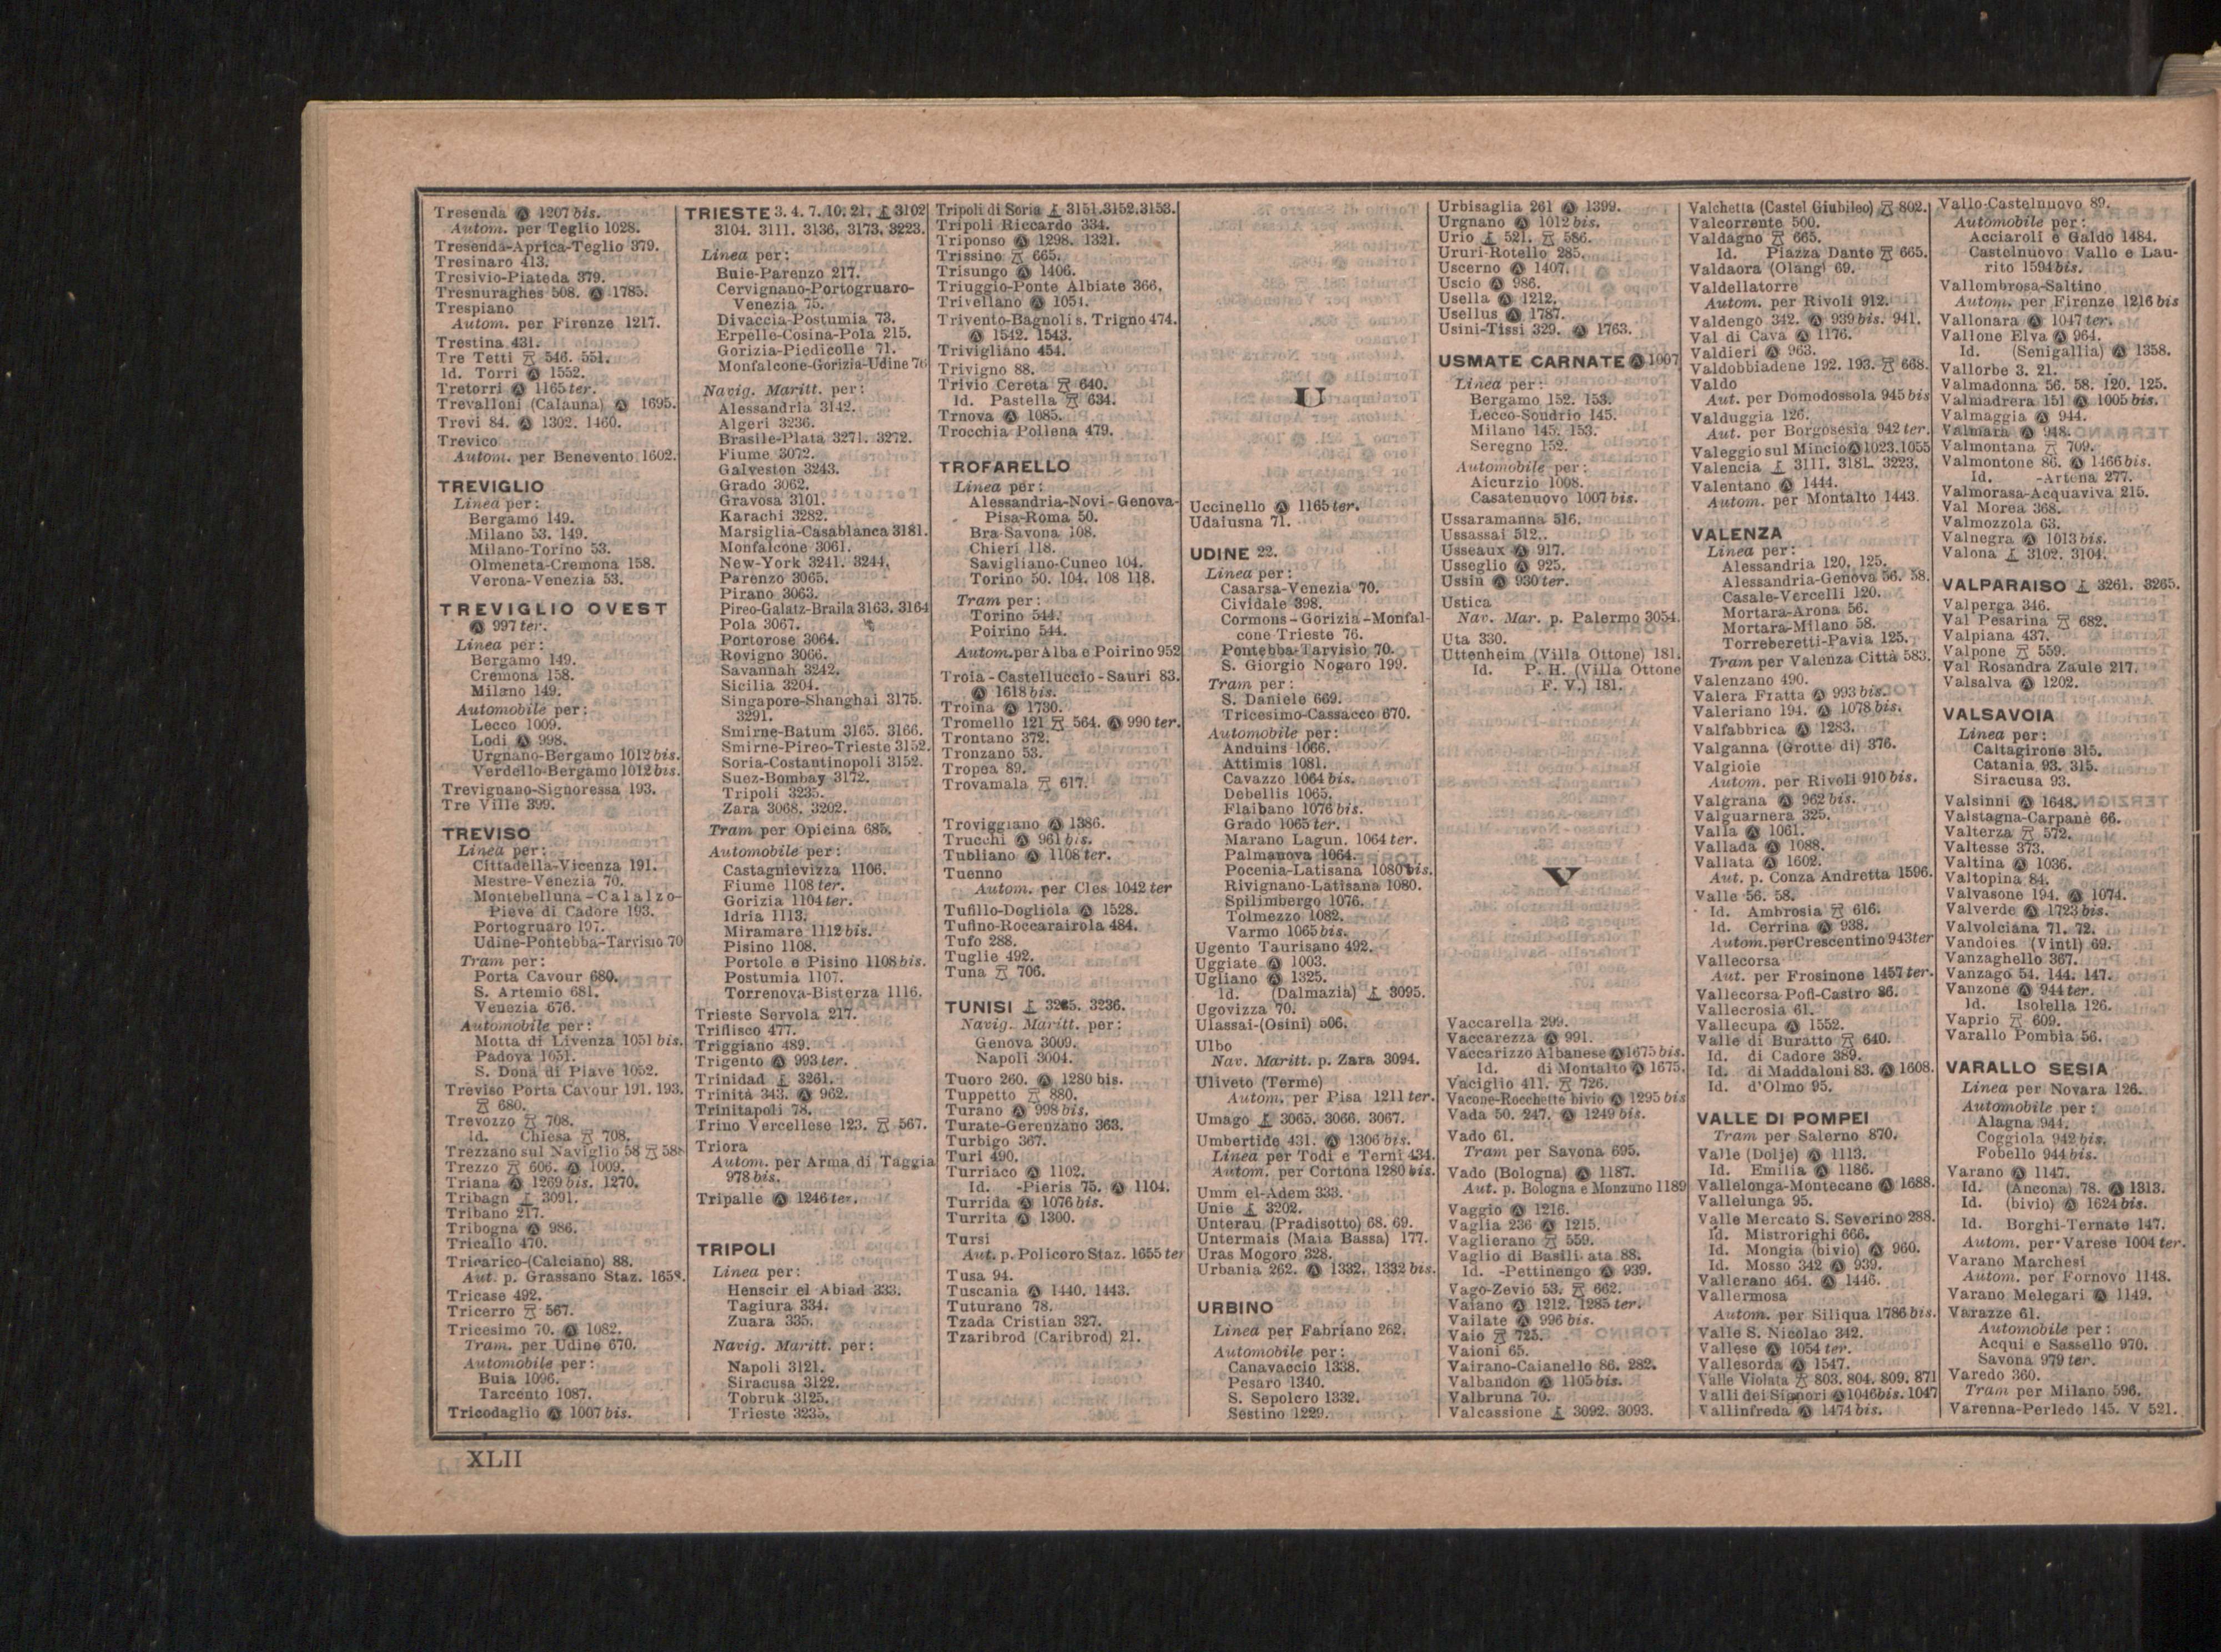 Tresenda Ⓐ 1207 bis.
Autom. per Teglio 1028.
Tresenda-Aprica-Teglio 379.
Tresinaro 413.
Tresivio-Piateda 379.
Tresnuraghes 508. Ⓐ 1785.
Trespiano
Autom. per Firenze 1217.
Trestina 431.
Tre Tetti 546. 551.
Id. Torri Ⓐ 1552.
Tretorri Ⓐ 1165 ter.
Trevalloni (Calanna) Ⓐ 1695.
Trevi 84. Ⓐ 1302. 1460.
Trevico
Autom. per Benevento 1602.
TREVIGLIO
Linea per:
Bergamo 149.
Milano 53. 149.
Milano-Torino 53.
Olmeneta-Cremona 158.
Verona-Venezia 53.
TREVIGLIO OVEST
Ⓐ 997 ter.
Linea per:
Bergamo 149.
Cremona 158.
Milano 149.
Automobile per:
Lecco 1009.
Lodi Ⓐ 998.
Urgnano-Bergamo 1012 bis.
Verdello-Bergamo 1012 bis.
Trevignano-Signoressa 193.
Tre Ville 399.
TREVISO
Linea per:
Cittadella-Vicenza 191.
Mestre-Venezia 70.
Montebelluna-Calalzo-
Pieve di Cadore 193.
Portogruaro 197.
Udine-Pontebba-Tarvisio 70
Tram per:
Porta Cavour 680.
S. Artemio 681.
Venezia 676.
Automobile per:
Motta di Livenza 1051 bis.
Padova 1051.
S. Donà di Piave 1052.
Treviso Porta Cavour 191. 193.
680.
Trevozzo 708.
Id. Chiesa 708.
Trezzano sul Naviglio 58
Trezzo 606. Ⓐ 1009.
Triana Ⓐ 1269 bis. 1270.
Tribagn 3091.
Tribano 217.
Tribogna Ⓐ 986.
Tricallo 470.
Tricarico-(Calciano) 88.
Aut. p. Grassano Staz. 1658.
Tricase 492.
Tricerro 567.
Tricesimo 70. Ⓐ 1082.
Tram. per Udine 670.
Automobile per:
Buia 1096.
Tarcento 1087.
Tricodaglio Ⓐ 1007 bis.
TRIESTE 3. 4. 7. 10. 21. 3102
3104. 3111. 3136. 3173. 3223.
Linea per:
Buie-Parenzo 217.
Cervignano-Portogruaro-
Venezia 75.
Divaccia-Postumia 73.
Erpelle-Cosina-Pola 215.
Gorizia-Piedicolle 71.
Monfalcone-Gorizia-Udine 76
Navig. Maritt. per:
Alessandria 3142.
Algeri 3236.
Brasile-Plata 3271. 3272.
Fiume 3072.
Galveston 3243.
Grado 3062.
Gravosa 3101.
Karachi 3282.
Marsiglia-Casablanca 3181.
Monfalcone 3061.
New-York 3241. 3244.
Parenzo 3065.
Pirano 3063.
Pireo-Galatz-Braila 3163. 3164
Pola 3067.
Portorose 3064.
Rovigno 3066.
Savannah 3242.
Sicilia 3204.
Singapore-Shanghai 3175.
3291.
Smirne-Batum 3165. 3166.
Smirne-Pireo-Trieste 3152.
Soria-Costantinopoli 3152.
Suez-Bombay 3172.
Tripoli 3235.
Zara 3068. 3202.
Tram per Opicina 685.
Automobile per:
Castagnievizza 1106.
Fiume 1108 ter.
Gorizia 1104 ter.
Idria 1113.
Miramare 1112 bis.
Pisino 1108.
Portole e Pisino 1108 bis.
Postumia 1107.
Torrenova-Bisterza 1116.
Trieste Servola 217.
Triflisco 477.
Triggiano 489.
Trigento Ⓐ 993 ter.
Trinidad 3261.
Trinità 343. Ⓐ 962.
Trinitapoli 78.
Trino Vercellese 123. 567.
Triora
Autom. per Arma di Taggia
978 bis.
Tripalle Ⓐ 1246 ter.
TRIPOLI
Linea per:
Henscir el Abiad 333.
Tagiura 334.
Zuara 335.
Navig. Maritt. per:
Napoli 3121.
Siracusa 3122.
Tobruk 3125.
Trieste 3235.
Tripoli di Soria 3151. 3152. 3153.
Tripoli Riccardo 334.
Triponso Ⓐ 1298. 1321.
Trissino 665.
Trisungo Ⓐ 1406.
Triuggio-Ponte Albiate 366.
Trivellano Ⓐ 1051.
Trivento-Bagnoli s. Trigno 474.
Ⓐ 1542. 1543.
Trivigliano 454.
Trivigno 88.
Trivio Cereta 640.
Id. Pastella 634.
Trnova Ⓐ 1085.
Trocchia Pollena 479.
TROFARELLO
Linea per:
Alessandria-Novi-Genova-
Pisa-Roma 50.
Bra-Savona 108.
Chieri 118.
Savigliano-Cuneo 104.
Torino 50. 104. 108 118.
Tram per:
Torino 544.
Poirino 544.
Autom. per Alba e Poirino 952
Troia-Castelluccio-Sauri 83.
Ⓐ 1618 bis.
Troina Ⓐ 1730.
Tromello 121 564. Ⓐ 990 ter.
Trontano 372.
Tronzano 53.
Tropea 89.
Trovamala 617.
Troviggiano Ⓐ 1386.
Trucchi Ⓐ 961 bis.
Tubliano Ⓐ 1108 ter.
Tuenno
Autom. per Cles 1042 ter
Tufillo-Dogliola Ⓐ 1528.
Tufino-Roccarairola 484.
Tufo 288.
Tuglie 492.
Tuna 706.
TUNISI 3235. 3236.
Navig. Maritt. per:
Genova 3009.
Napoli 3004.
Tuoro 260. Ⓐ 1280 bis.
Tuppetto 880.
Turano Ⓐ 998 bis.
Turate-Gerenzano 363.
Turbigo 367.
Turi 490.
Turriaco Ⓐ 1102.
Id. -Pieris 75. Ⓐ 1104.
Turrida Ⓐ 1076 bis.
Turrita Ⓐ 1300.
Tursi
Aut. p. Policoro Staz. 1655 ter
Tusa 94.
Tuscania Ⓐ 1440. 1443.
Tuturano 78.
Tzada Cristian 327.
Tzaribrod (Caribrod) 21.
U
Uccinello Ⓐ 1165 ter.
Udaiusna 71.
UDINE 22.
Linea per:
Casarsa-Venezia 70.
Cividale 398.
Cormons-Gorizia-Monfal-
cone Trieste 76.
Pontebba-Tarvisio 70.
S. Giorgio Nogaro 199.
Tram per:
S. Daniele 669.
Tricesimo-Cassacco 670.
Automobile per:
Anduins 1066.
Attimis 1081.
Cavazzo 1064 bis.
Debellis 1065.
Flaibano 1076 bis.
Grado 1065 ter.
Marano Lagun. 1064 ter.
Palmanova 1064.
Pocenia-Latisana 1080 bis.
Rivignano-Latisana 1080.
Spilimbergo 1076.
Tolmezzo 1082.
Varmo 1065 bis.
Ugento Taurisano 492.
Uggiate Ⓐ 1003.
Ugliano Ⓐ 1325.
Id. (Dalmazia) 3095.
Ugovizza 70.
Ulassai-(Osini) 506.
Ulbo
Nav. Maritt. p. Zara 3094.
Uliveto (Terme)
Autom. per Pisa 1211 ter.
Umago 3065. 3066. 3067.
Umbertide 431. Ⓐ 1306 bis.
Linea per Todi e Terni 434.
Autom. per Cortona 1280 bis.
Umm el-Adem 333.
Unie 3202.
Unterau (Pradisotto) 68. 69.
Untermais (Maia Bassa) 177.
Uras Mogoro 328.
Urbania 262. Ⓐ 1332. 1332 bis.
URBINO
Linea per Fabriano 262.
Automobile per:
Canavaccio 1338.
Pesaro 1340.
S. Sepolcro 1332.
Sestino 1229.
Urbisaglia 261 Ⓐ 1399.
Urgnano Ⓐ 1012 bis.
Urio 521. 586.
Ururi-Rotello 285.
Uscerno Ⓐ 1407.
Uscio Ⓐ 986.
Usella Ⓐ 1212.
Usellus Ⓐ 1787.
Usini-Tissi 329. Ⓐ 1763.
USMATE CARNATE Ⓐ 1007
Linea per:
Bergamo 152. 153.
Lecco-Sondrio 145.
Milano 145. 153.
Seregno 152.
Automobile per:
Aicurzio 1008.
Casatenuovo 1007 bis.
Ussaramanna 516.
Ussassai 512.
Usseaux Ⓐ 917.
Usseglio Ⓐ 925.
Ussin Ⓐ 930 ter.
Ustica
Nav. Mar. p. Palermo 3054.
Uta 330.
Uttenheim (Villa Ottone) 181.
Id. P. H. (Villa Ottone
F. V.) 181.
V
Vaccarella 299.
Vaccarezza Ⓐ 991.
Vaccarizzo Albanese Ⓐ 1675 bis.
Id. di Montalto Ⓐ 1675.
Vaciglio 411. 726.
Vacone-Rocchette bivio Ⓐ 1295 bis
Vada 50. 247. Ⓐ 1249 bis.
Vado 61.
Tram per Savona 695.
Vado (Bologna) Ⓐ 1187.
Aut. p. Bologna e Monzuno 1189
Vaggio Ⓐ 1216.
Vaglia 236 Ⓐ 1215.
Vaglierano 559.
Vaglio di Basili ata 88.
Id. -Pettinengo Ⓐ 939.
Vago-Zevio 53. 662.
Vaiano Ⓐ 1212. 1285 ter.
Vailate Ⓐ 996 bis.
Vaio 725.
Vaioni 65.
Vairano-Caianello 86. 282.
Valbandon Ⓐ 1105 bis.
Valbruna 70.
Valcassione 3092. 3093.
Valchetta (Castel Giubileo) 802.
Valcorrente 500.
Valdagno 665.
Id. Piazza Dante 665.
Valdaora (Olang) 69.
Valdellatorre
Autom. per Rivoli 912.
Valdengo 342. Ⓐ 939 bis. 941.
Val di Cava Ⓐ 1176.
Valdieri Ⓐ 963.
Valdobbiadene 192. 193. 668.
Valdo
Aut. per Domodossola 945 bis
Valduggia 126.
Aut. per Borgosesia 942 ter.
Valeggio sul Mincio Ⓐ 1023. 1055
Valencia 3111. 3181. 3223.
Valentano Ⓐ 1444.
Autom. per Montalto 1443.
VALENZA
Linea per:
Alessandria 120. 125.
Alessandria-Genova 56. 58.
Casale-Vercelli 120.
Mortara-Arona 56.
Mortara-Milano 58.
Torreberetti-Pavia 125.
Tram per Valenza Città 583.
Valenzano 490.
Valera Fratta Ⓐ 993 bis.
Valeriano 194. Ⓐ 1078 bis.
Valfabbrica Ⓐ 1283.
Valganna (Grotte di) 376.
Valgioie
Autom. per Rivoli 910 bis.
Valgrana Ⓐ 962 bis.
Valguarnera 325.
Valla Ⓐ 1061.
Vallada Ⓐ 1088.
Vallata Ⓐ 1602.
Aut. p. Conza Andretta 1596.
Valle 56. 58.
Id. Ambrosia 616.
Id. Cerrina Ⓐ 938.
Autom. per Crescentino 943 ter
Vallecorsa
Aut. per Frosinone 1457 ter.
Vallecorsa Pofi-Castro 86.
Vallecrosia 61.
Vallecupa Ⓐ 1552.
Valle di Buratto 640.
Id. di Cadore 389.
Id. di Maddaloni 83. Ⓐ 1608.
Id. d'Olmo 95.
VALLE DI POMPEI
Tram per Salerno 870.
Valle (Dolje) Ⓐ 1113.
Id. Emilia Ⓐ 1186.
Vallelonga-Montecane Ⓐ 1688.
Vallelunga 95.
Valle Mercato S. Severino 288.
Id. Mistrorighi 666.
Id. Mongia (bivio) Ⓐ 960.
Id. Mosso 342 Ⓐ 939.
Vallerano 464. Ⓐ 1446.
Vallermosa
Autom. per Siliqua 1786 bis.
Valle S. Nicolao 342.
Vallese Ⓐ 1054 ter.
Vallesorda Ⓐ 1547.
Valle Violata 803. 804. 809. 871
Valli dei Signori Ⓐ 1046 bis. 1047
Vallinfreda Ⓐ 1474 bis.
Vallo-Castelnuovo 89.
Automobile per:
Acciaroli e Galdo 1484.
Castelnuovo Vallo e Lau-
rito 1594 bis.
Vallombrosa-Saltino
Autom. per Firenze 1216 bis
Vallonara Ⓐ 1047 ter.
Vallone Elva Ⓐ 964.
Id. (Senigallia) Ⓐ 1358.
Vallorbe 3. 21.
Valmadonna 56. 58. 120. 125.
Valmadrera 151 Ⓐ 1005 bis.
Valmaggia Ⓐ 944.
Valmara Ⓐ 948.
Valmontana 709.
Valmontone 86. Ⓐ 1466 bis.
Id. -Artena 277.
Valmorasa-Acquaviva 215.
Val Morea 368.
Valmozzola 63.
Valnegra Ⓐ 1013 bis.
Valona 3102. 3104.
VALPARAISO 3261. 3265.
Valperga 346.
Val Pesarina 682.
Valpiana 437.
Valpone 559.
Val Rosandra Zaule 217.
Valsalva Ⓐ 1202.
VALSAVOIA
Linea per:
Caltagirone 315.
Catania 93. 315.
Siracusa 93.
Valsinni Ⓐ 1648.
Valstagna-Carpanè 66.
Valterza 572.
Valtesse 373.
Valtina Ⓐ 1036.
Valtopina 84.
Valvasone 194. Ⓐ 1074.
Valverde Ⓐ 1723 bis.
Valvolciana 71. 72.
Vandoies (Vintl) 69.
Vanzaghello 367.
Vanzago 54. 144. 147.
Vanzone Ⓐ 944 ter.
Id. Isolella 126.
Vaprio 609.
Varallo Pombia 56.
VARALLO SESIA
Linea per Novara 126.
Automobile per:
Alagna 944.
Coggiola 942 bis.
Fobello 944 bis.
Varano Ⓐ 1147.
Id. (Ancona) 78. Ⓐ 1313.
Id. (bivio) Ⓐ 1624 bis.
Id. Borghi-Ternate 147.
Autom. per Varese 1004 ter.
Varano Marchesi
Autom. per Fornovo 1148.
Varano Melegari Ⓐ 1149.
Varazze 61.
Automobile per:
Acqui e Sassello 970.
Savona 979 ter.
Varedo 360.
Tram per Milano 596.
Varenna-Perledo 145. V 521.
XLII